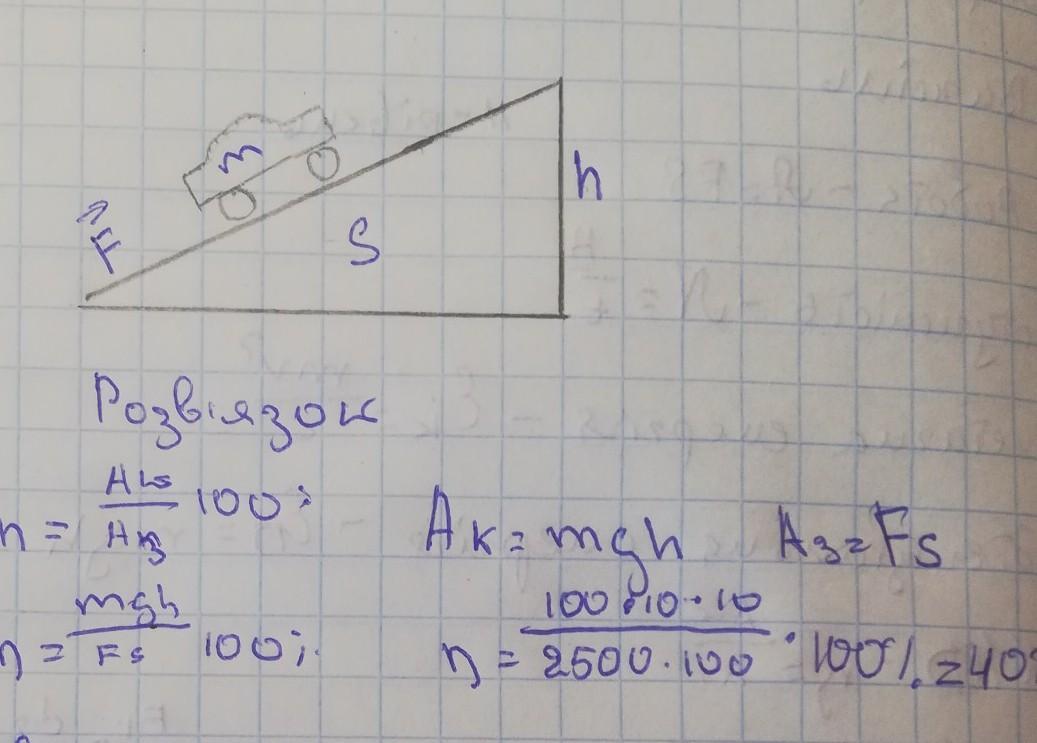 m
h
F
S
Розв'язок
η = Ак/Аз 100%
Ак = mgh Аз = Fs
η = mgh/Fs 100%
η = 100·10·10/2500·100 · 100% = 40%